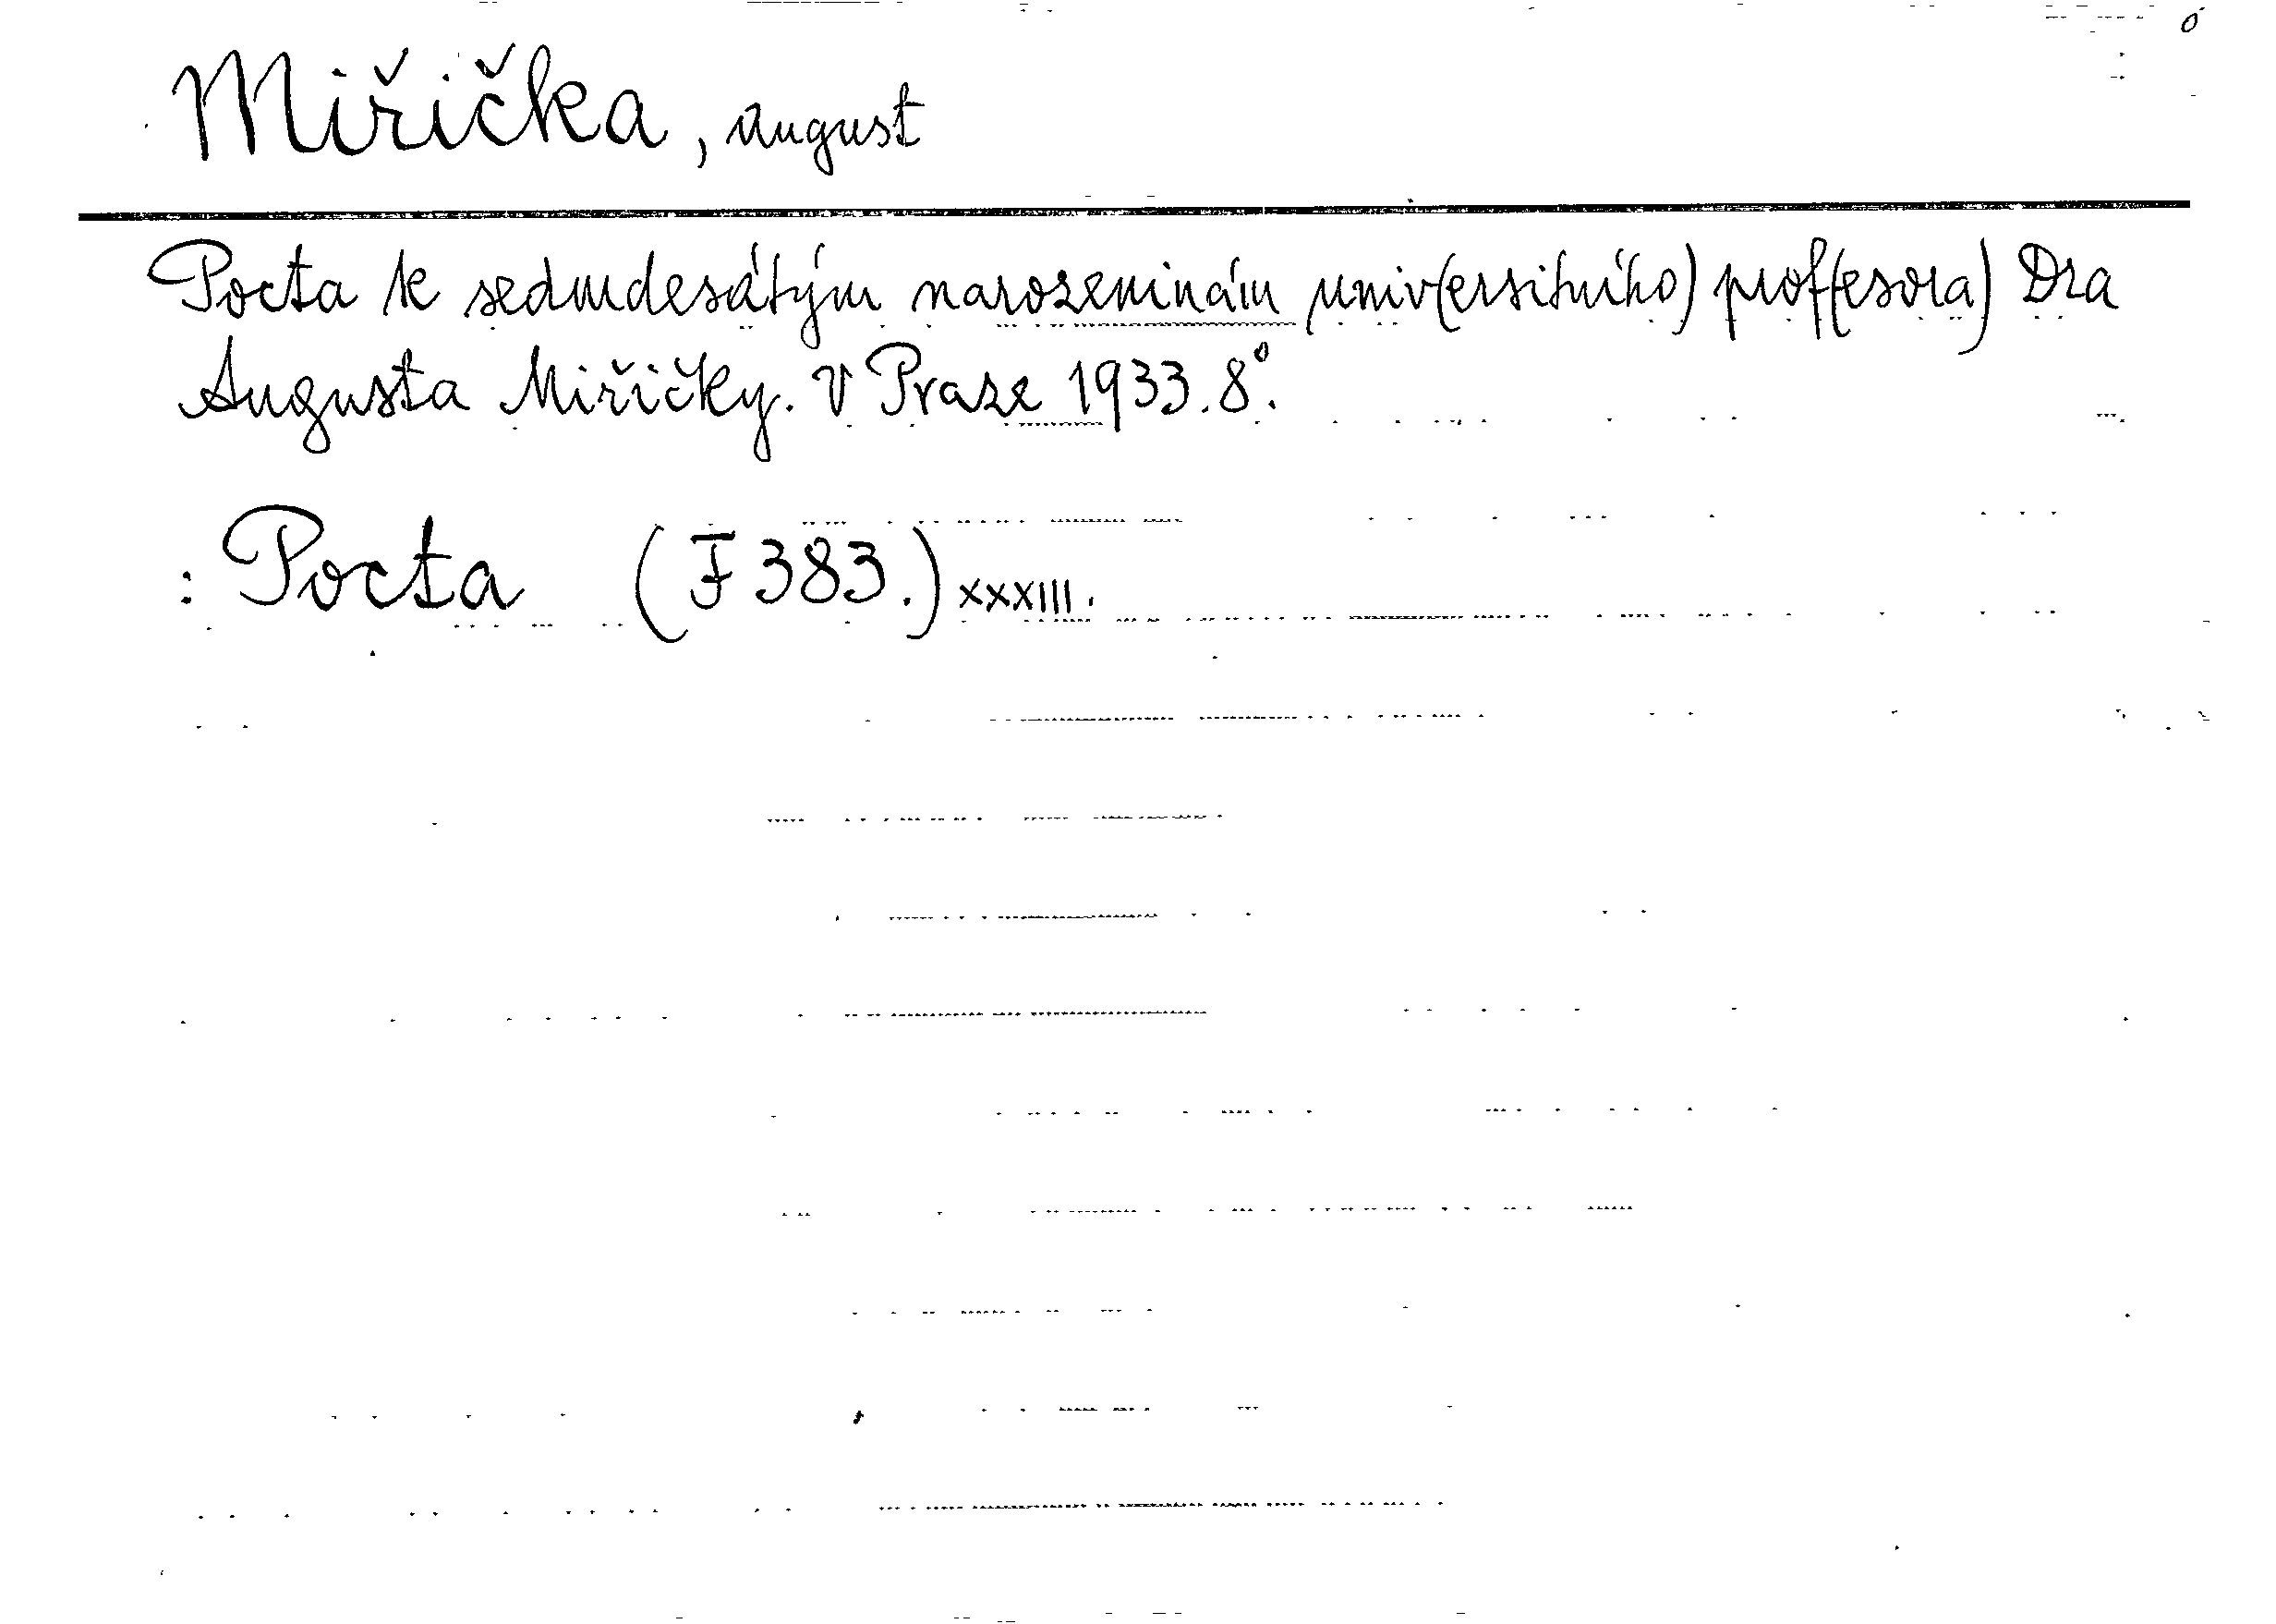 Miřička, august
Pocta k sedmdesátým narozeninám univ(ersitního) prof(esora) Dra
Augusta Miřičky. V Praze 1933. 8°.
: Pocta (F 383.) XXXIII.